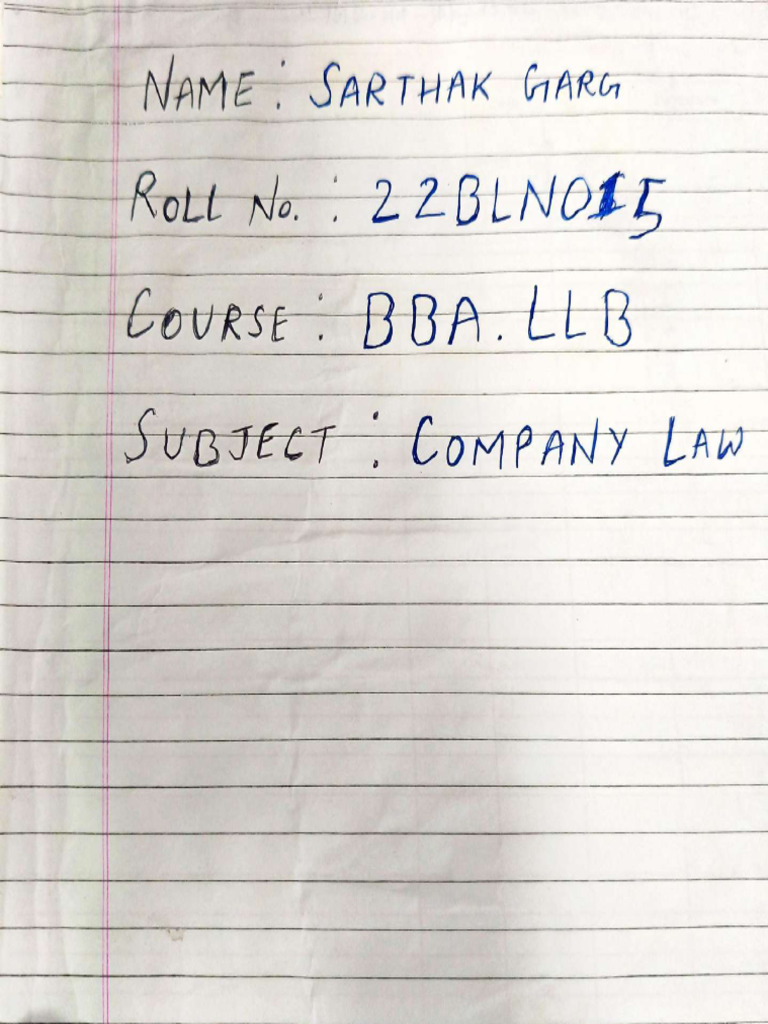 NAME : SARTHAK GARG
ROLL NO. : 22BLN015
COURSE : BBA. LLB
SUBJECT : COMPANY LAW